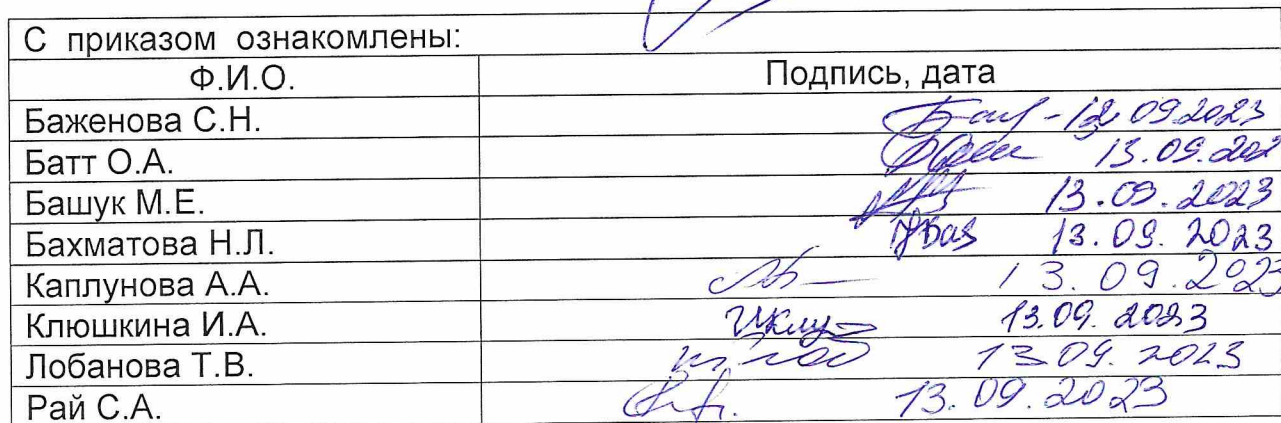 С приказом ознакомлены:
Ф.И.О. Подпись, дата
Баженова С.Н. 09.2023
Батт О.А. 13.09.202
Башук М.Е. 13.09.2023
Бахматова Н.Л. 13.09.2023
Каплунова А.А. 13.09.2023
Клюшкина И.А. 13.09.2023
Лобанова Т.В. 13 09.2023
Рай С.А. 13.09.2023